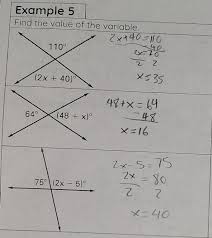 Example 5
Find the value of the variable.
110°
(2x + 40)°
2x+40=110
-40
2x=70
2 2
x=35
64°
(48 + x)°
48+x=64
-48
x=16
75°
(2x − 5)°
2x-5=75
2x=80
2 2
x=40